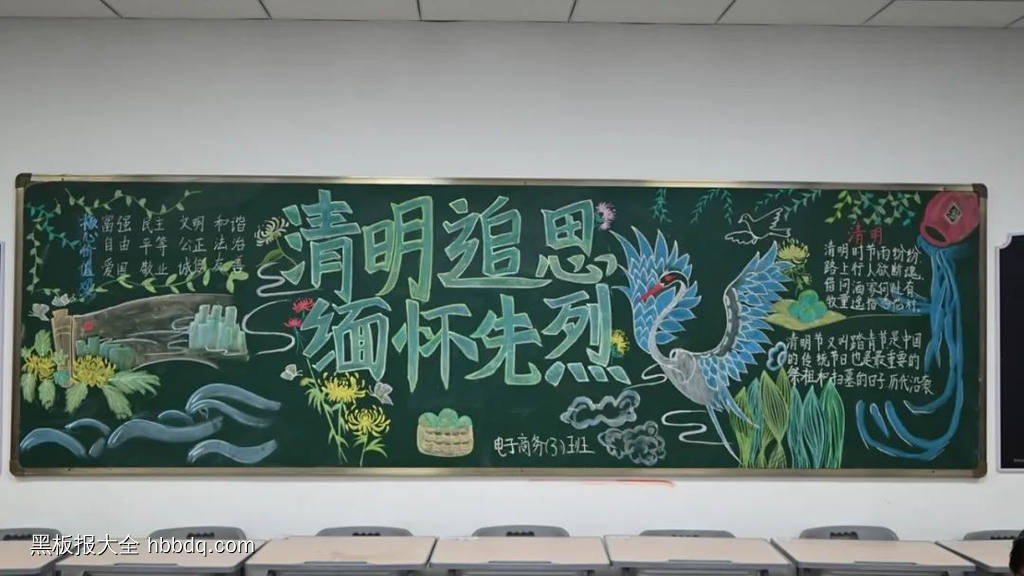 核心价值观
富强 民主 文明 和谐
自由 平等 公正 法治
爱国 敬业 诚信 友善
清明追思
缅怀先烈
电子商务(3)班
清明
清明时节雨纷纷
路上行人欲断魂
借问酒家何处有
牧童遥指杏花村
清明节又叫踏青节是中国
的传统节日也是最重要的
祭祖和扫墓的日子 历代沿袭
黑板报大全 hbbdq.com